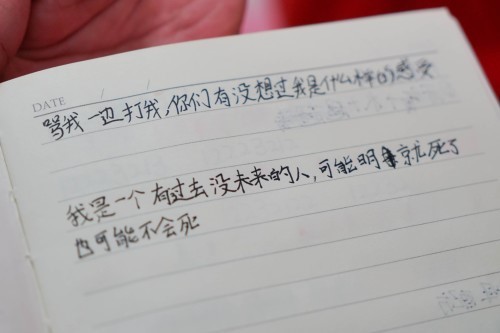 DATE / /
骂我一边打我,你们有没想过我是什么样的感受
我是一个有过去没未来的人,可能明就死了
也可能不会死